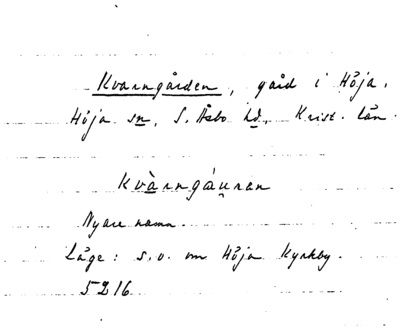 Kvarngården, gård i Höja,
Höja sn, S. Åsbo hd, Krist. län.
Kvàrngáu̯ren
Nyare namn.
Läge: s.v. om Höja Kyrkby.
5216